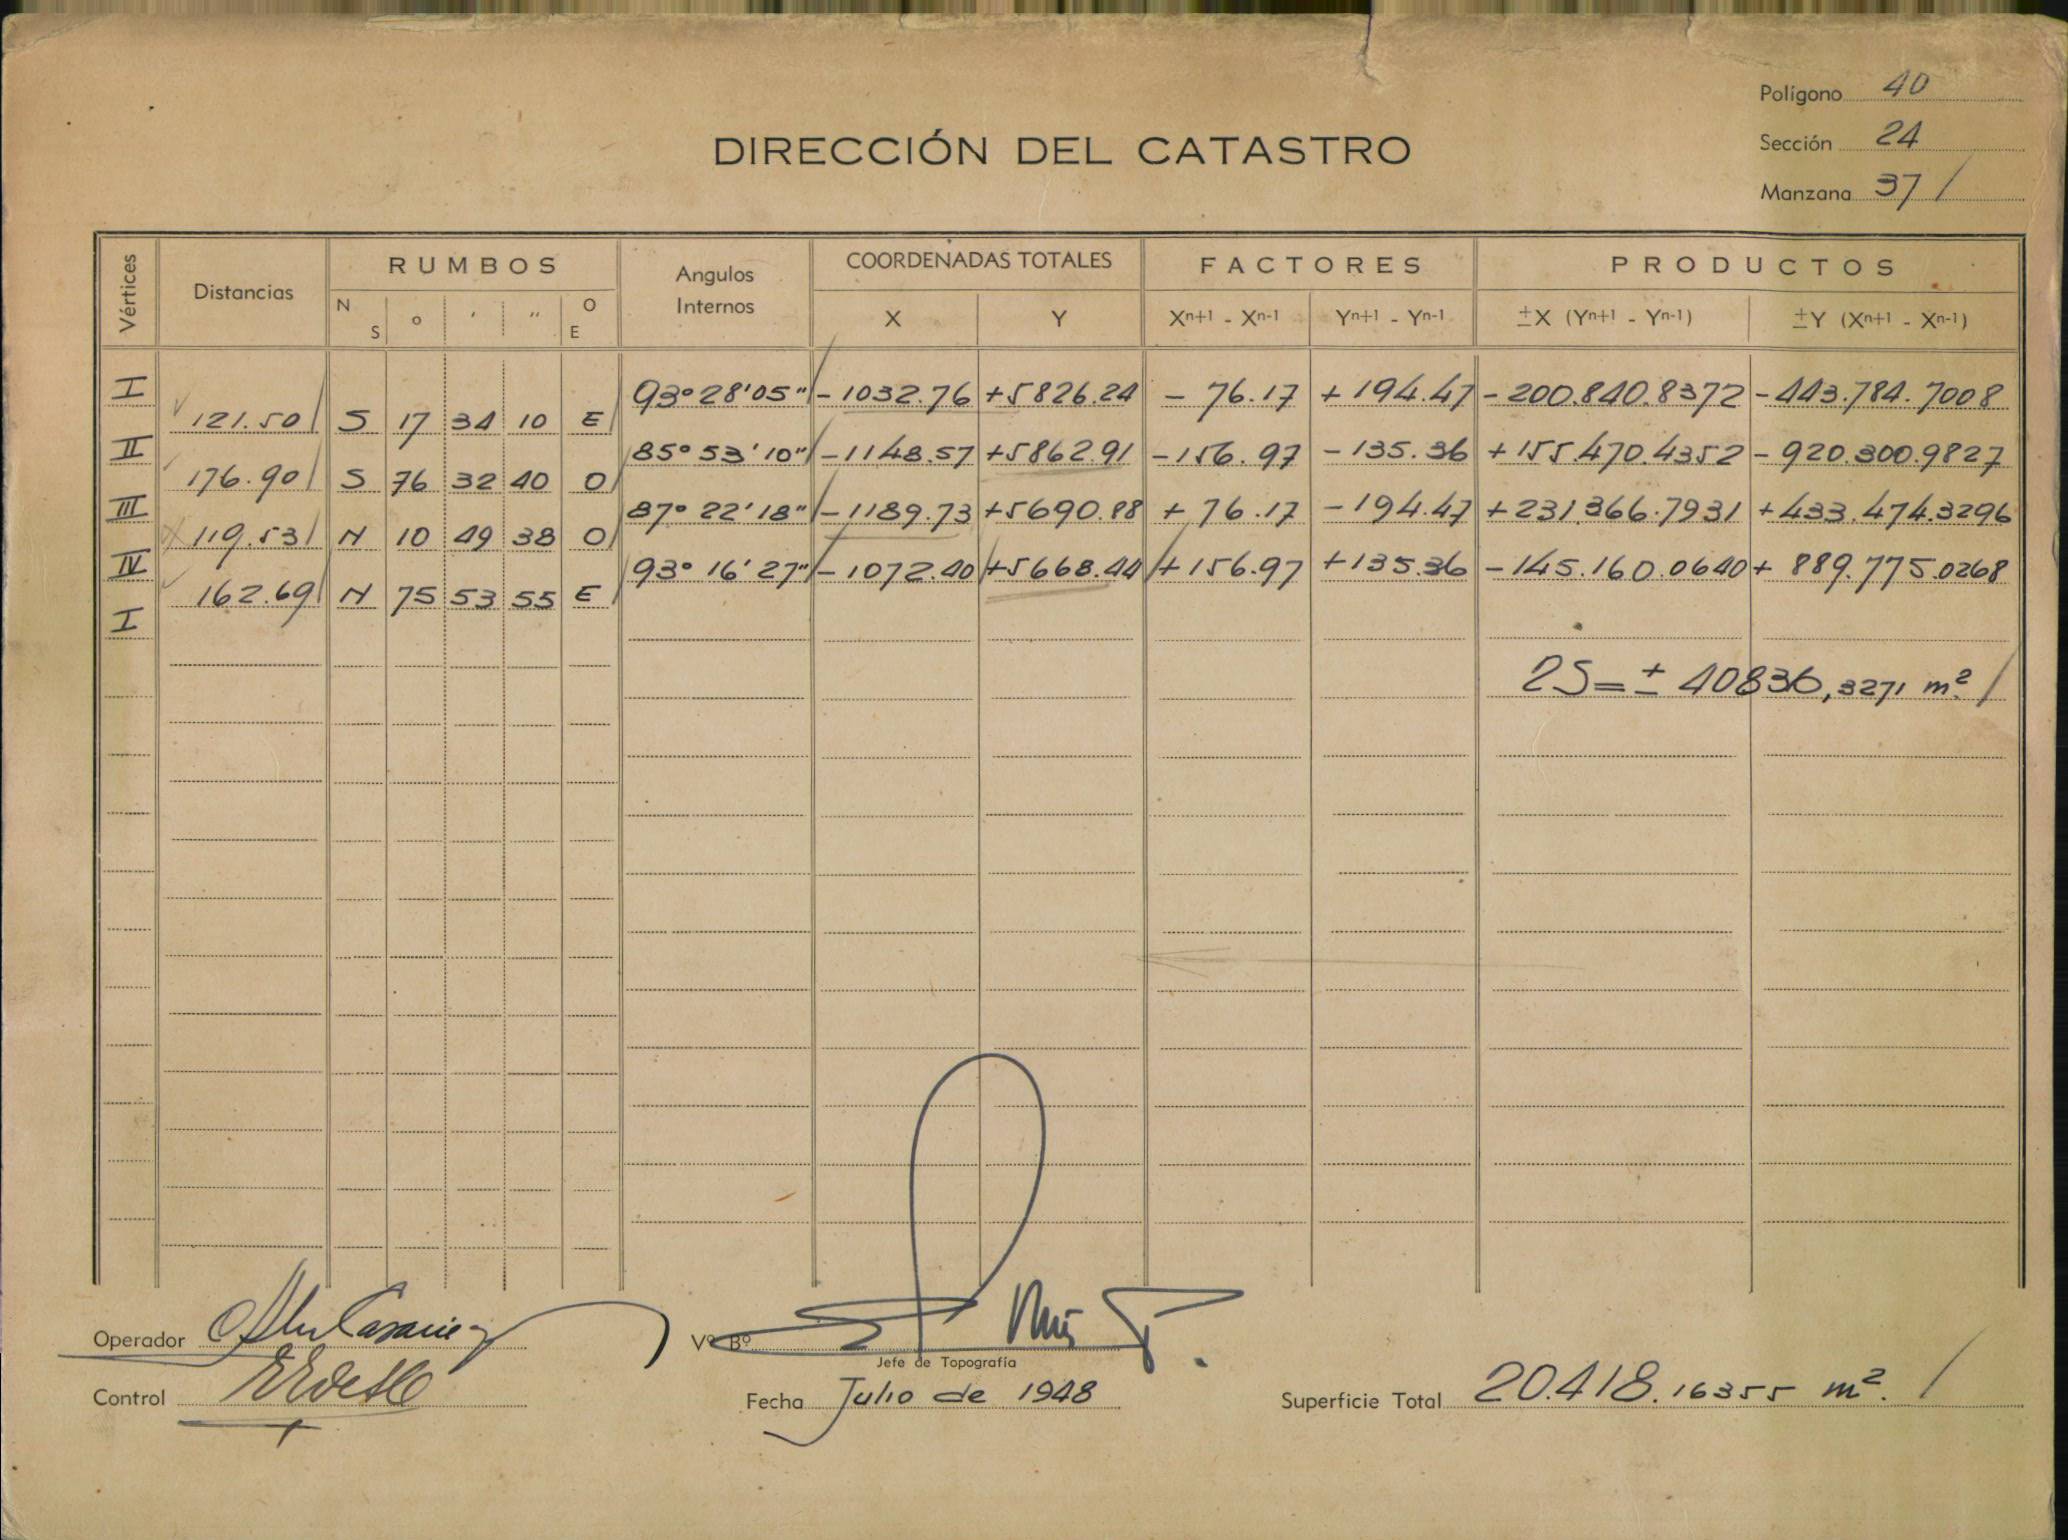 Polígono 40
DIRECCIÓN DEL CATASTRO
Sección 24
Manzana 37 /
Vértices Distancias RUMBOS Angulos Internos COORDENADAS TOTALES FACTORES PRODUCTOS
N S ° ' " O E X Y Xn+1 - Xn-1 Yn+1 - Yn-1 ±X (Yn+1 - Yn-1) ±Y (Xn+1 - Xn-1)
I 93° 28' 05" - 1032.76 +5826.24 - 76.17 + 194.47 - 200.840.8372 - 443.784.7008
121.50 S 17 34 10 E
II 85° 53' 10" - 1148.57 +5862.91 - 156.97 - 135.36 + 155.470.4352 - 920.300.9827
176.90 S 76 32 40 O
III 87° 22' 18" - 1189.73 +5690.88 + 76.17 - 194.47 + 231.366.7931 + 433.474.3296
119.53 N 10 49 38 O
IV 93° 16' 27" - 1072.40 +5668.44 + 156.97 + 135.36 - 145.160.0640 + 889.775.0268
162.69 N 75 53 55 E
I
2S = ± 40836,3271 m² /
Operador
Vº Bº
Jefe de Topografía
Control
Fecha Julio de 1948
Superficie Total 20.418.16355 m². /